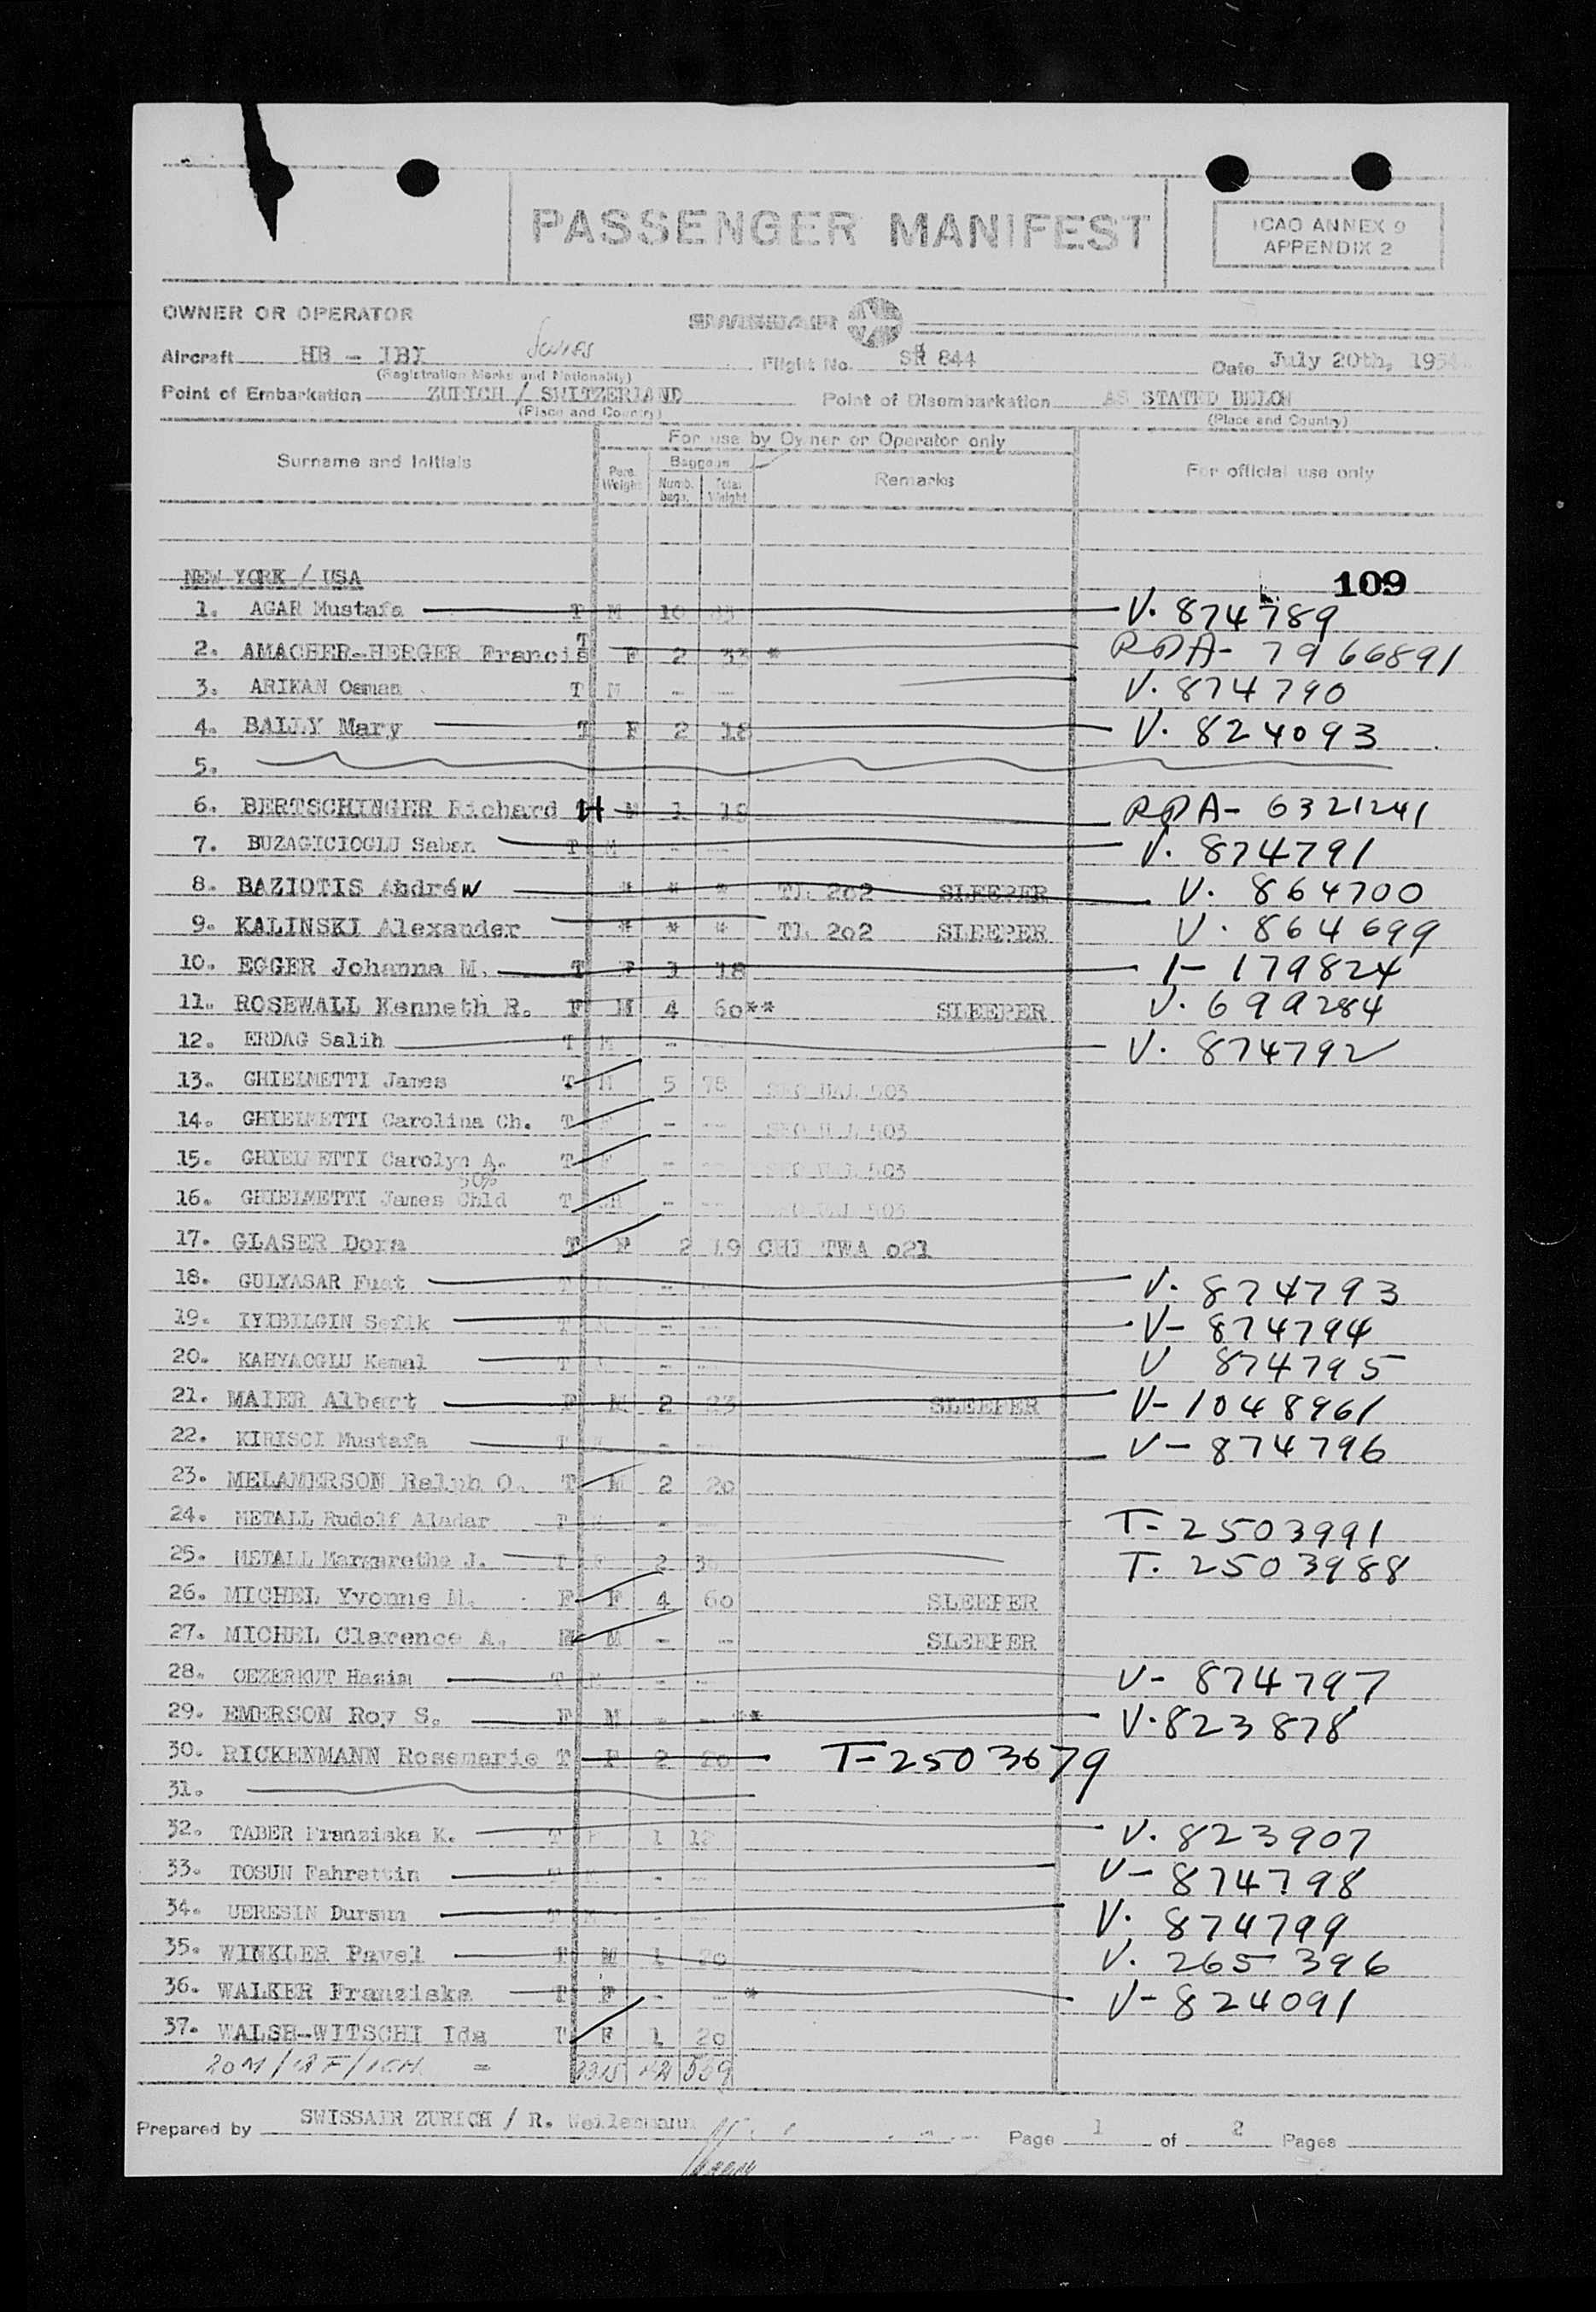 PASSENGER MANIFEST
ICAO ANNEX 9
APPENDIX 2
OWNER OR OPERATOR SWISSAIR
Aircraft HB - IBI Flight No. SR 844 Date July 20th, 195
(Registration Marks and Nationality)
Point of Embarkation ZURICH / SWITZERLAND Point of Disembarkation AS STATED BELOW
(Place and Country) (Place and Country)
For use by Owner or Operator only
Surname and Initials Pers. Weight Baggage Numb. bags. Total Weight Remarks For official use only
NEW YORK / USA 109
1. AGAR Mustafa T M 10 V. 874789
2. AMACHER-HERGER Francis T F 2 * RPA- 7966891
3. ARIKAN Osman T M - -- V. 874790
4. BAILLY Mary T F 2 18 V. 824093
5.
6. BERTSCHINGER Richard H M 1 19 RPA- 6321241
7. BUZAGICIOGLU Saban T M - -- V. 874791
8. BAZIOTIS Andréw * * * TL 202 SLEEPER V. 864700
9. KALINSKI Alexander * * * TL 202 SLEEPER V. 864699
10. EGGER Johanna M. T F 1 18 I- 179824
11. ROSEWALL Kenneth R. F M 4 60** SLEEPER V. 699284
12. ERDAG Salih T M - V. 874792
13. GHIELMETTI James T M 5 78 SFO UAL 503
14. GHIELMETTI Carolina Ch. T - -- SFO UAL 503
15. GHIELMETTI Carolyn A. T F - -- SFO UAL 503
50%
16. GHIELMETTI James Chld T CH - -- SFO UAL 503
17. GLASER Dora T F 2 19 CHI TWA 021
18. GULYASAR Fuat T M - V. 874793
19. IYIBILGIN Sefik T M - -- V- 874794
20. KAHYAOGLU Kemal T M - -- V 874795
21. MAIER Albert F M 2 23 SLEEPER V- 1048961
22. KIRISCI Mustafa T M - V- 874796
23. MELAMERSON Ralph O. T M 2 20
24. METALL Rudolf Aladar T M - T- 2503991
25. METALL Margarethe J. T F 2 T. 2503988
26. MICHEL Yvonne M. F F 4 60 SLEEPER
27. MICHEL Clarence A. M - -- SLEEPER
28. OEZERKUT Hasim T M - -- V- 874797
29. EMERSON Roy S. F M - -- ** V. 823878
30. RICKENMANN Rosemarie T F 2 20 T- 2503679
31.
32. TABER Franziska K. T F 1 V. 823907
33. TOSUN Fahrettin T M - -- V- 874798
34. UERESIN Dursun T M - -- V. 874799
35. WINKLER Pavel T M 1 20 V. 265396
36. WALKER Franziska T F - -- * V- 824091
37. WALSH-WITSCHI Ida T F 1 20
20M / 13F / 1CH =
Prepared by SWISSAIR ZURICH / R. Page 1 of 2 Pages